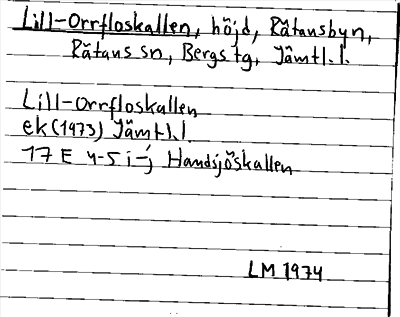 Lill-Orrfloskallen, höjd, Rätansbyn,
Rätans sn, Bergs tg, Jämtl.l.
Lill-Orrfloskallen
ek (1973) Jämtl.l.
17 E 4-5 i-j Handsjöskallen
LM 1974